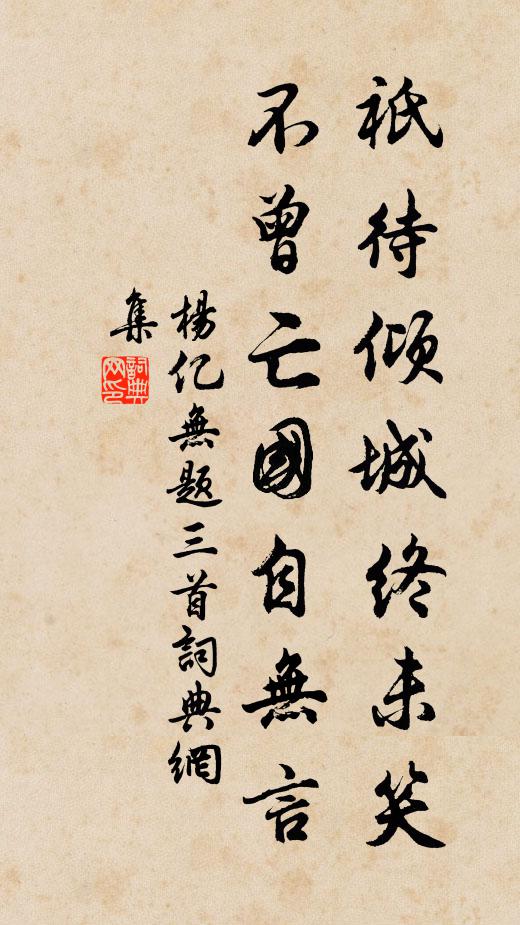 祇待傾城終未笑
不曾亡國自無言
楊亿無题三首詞典網
集
詞典
网印